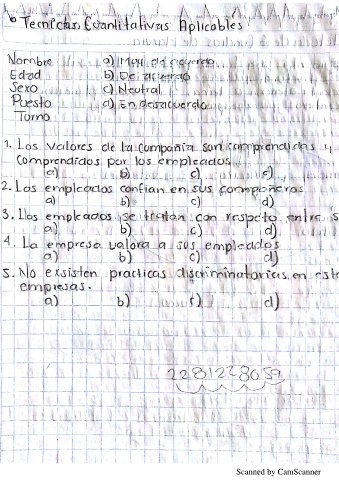 Tecnicas Cuantitativas Aplicables
Nombre a) Muy de acuerdo
Edad b) De acuerdo
Sexo c) Neutral
Puesto d) En desacuerdo
Turno
1. Los valores de la compañia son comprendidas y
comprendidos por los empleados.
a) b) c) d)
2. Los empleados confian en sus compañeros
a) b) c) d)
3. Los empleados se tratan con respeto entre s
a) b) c) d)
4. La empresa valora a sus empleados
a) b) c) d)
5. No exsisten practicas discriminatorias en este
empresas.
a) b) c) d)
2281228059
Scanned by CamScanner